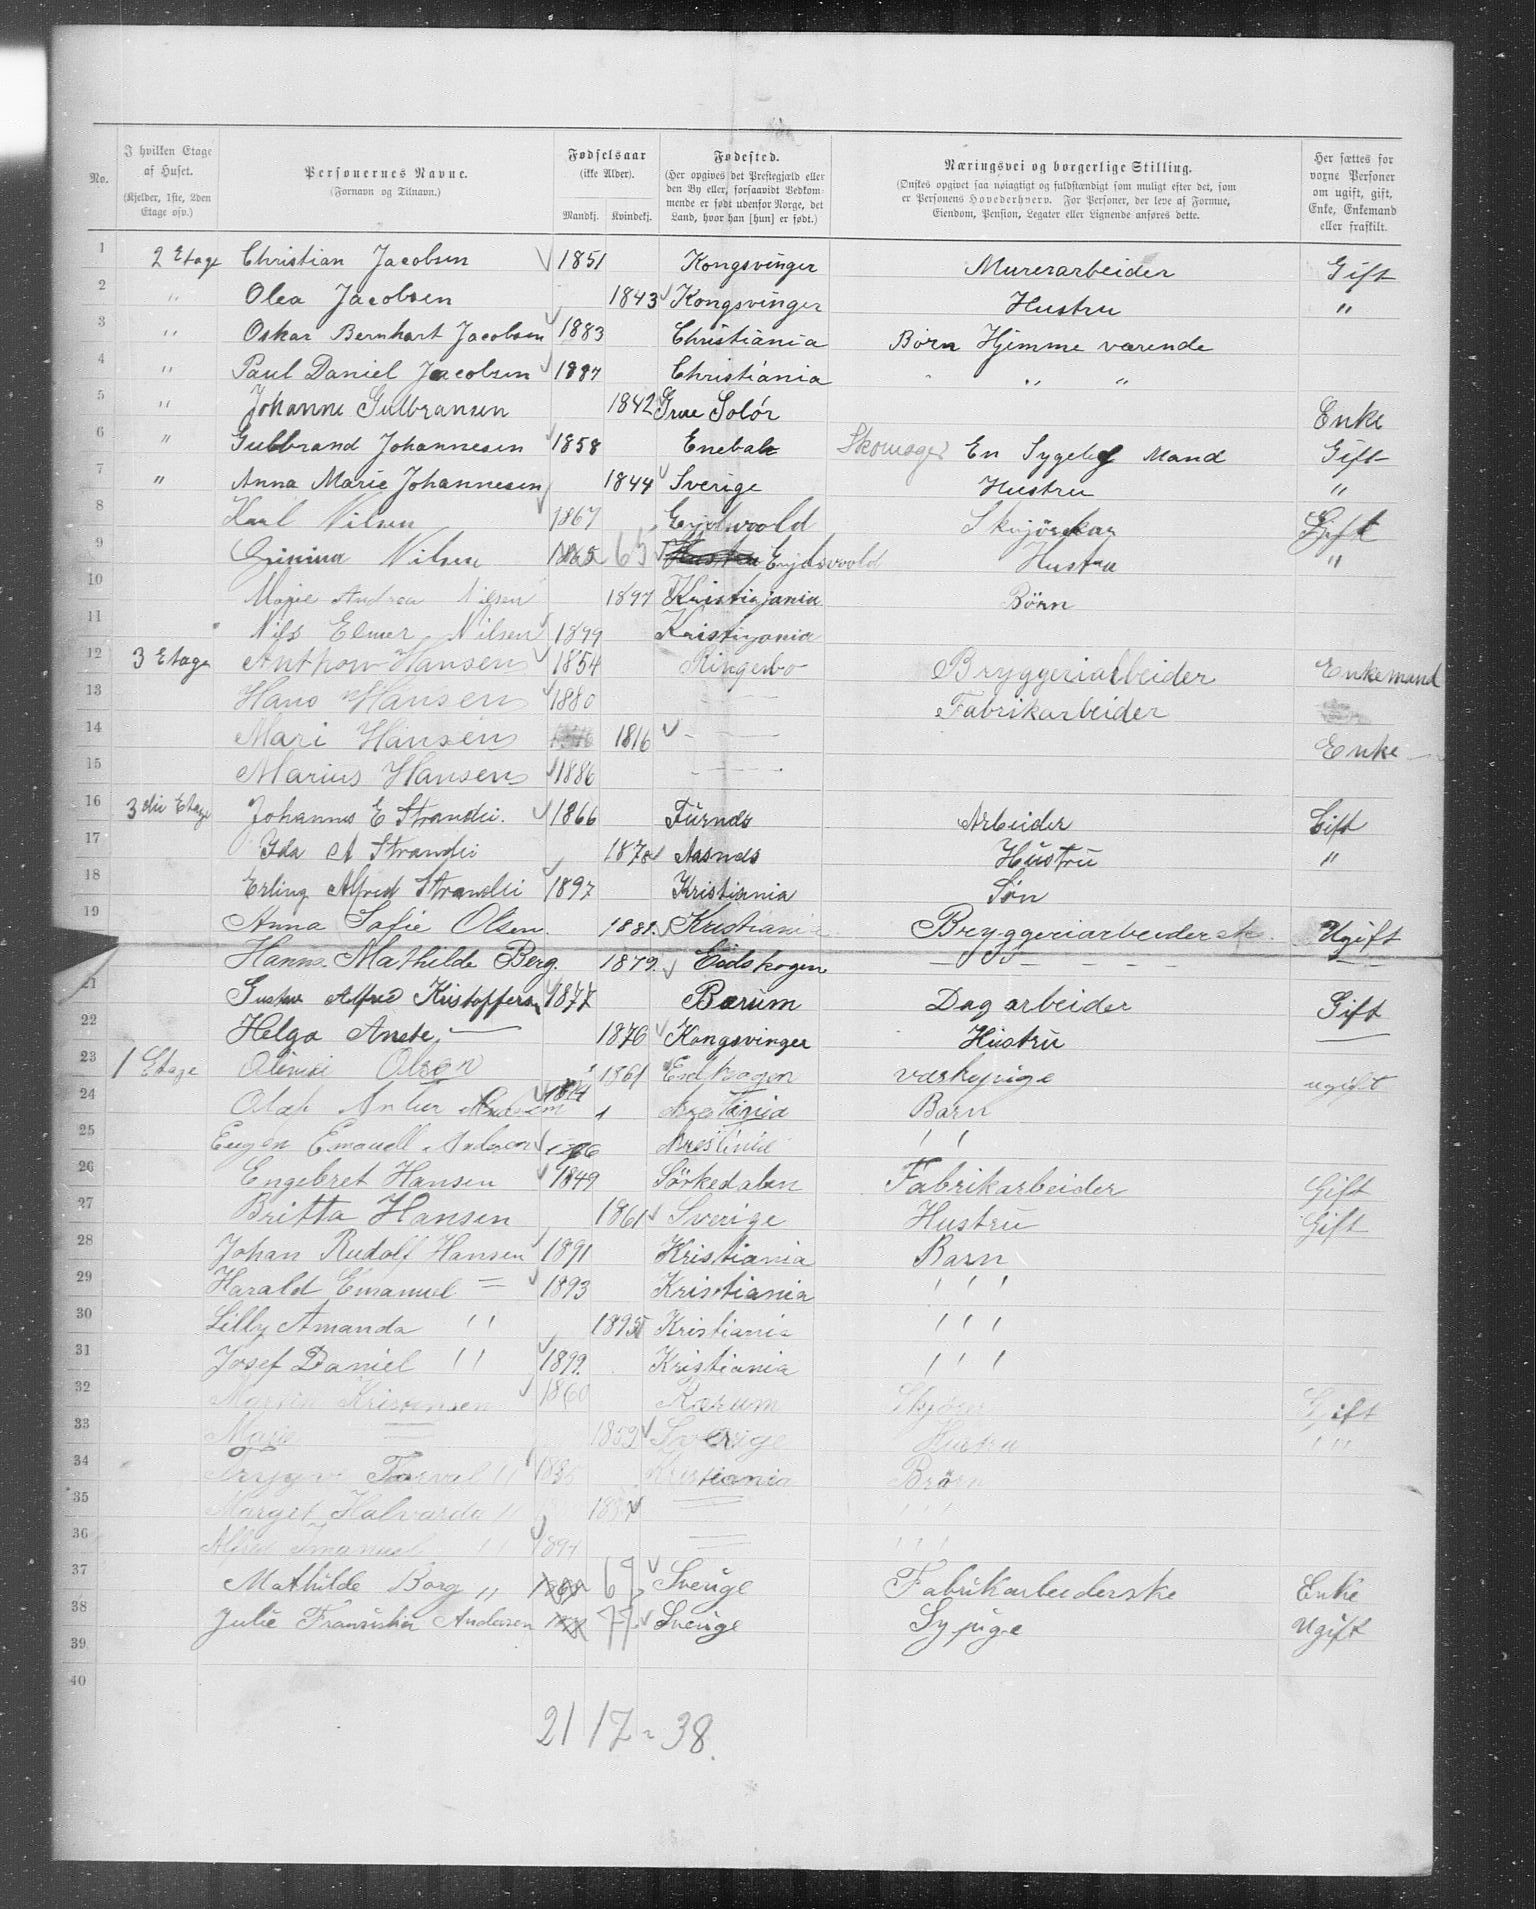 No. | I hvilken Etage af Huset. (Kjelder, 1ste, 2den Etage osv.) | Personernes Navne. (Fornavn og Tilnavn.) | Fødselsaar (ikke Alder). Mandkj. Kvindekj. | Fødested. (Her opgives det Prestegjæld eller den By eller, forsaavidt Vedkommende er født udenfor Norge, det Land, hvor han [hun] er født.) | Næringsvei og borgerlige Stilling. (Ønskes opgivet saa nøiagtigt og fuldstændigt som muligt efter det, som er Personens Hovederhverv. For Personer, der leve af Formue, Eiendom, Pension, Legater eller Lignende anføres dette. | Her sættes for voxne Personer om ugift, gift, Enke, Enkemand eller fraskilt.
1 2 Etage Christian Jacobsen 1851 Kongsvinger Murerarbeider Gift
2 " Olea Jacobsen 1843 Kongsvinger Hustru "
3 " Oskar Bernhart Jacobsen 1883 Christiania Børn Hjemme værende
4 " Paul Daniel Jacobsen 1887 Christiania " "
5 " Johanne Gulbransen 1842 Grue Solør Enke
6 " Gulbrand Johannesen 1858 Enebak Skomager En Sygelig Mand Gift
7 " Anna Marie Johannesen 1844 Sverige Hustru "
8 Karl Nilsen 1867 Eijdsvoold Skujørekar Gift
9 Nilsen 1865 65 Hustru Eijdsvoold Hustru "
10 Marie Andrea Nilsen 1897 Kristiajania Børn
11 Nils Elmer Nilsen 1899 Kristijania
12 3 Etage Anthon Hansen 1854 Ringebo Bryggeriarbeider Enkemand
13 Hans Hansen 1880 — Fabrikarbeider
14 Mari Hansen 1816 — Enke
15 Marius Hansen 1886 —
16 3die Etage Johannes E Strandli. 1866 Furnds Arbeider Gift
17 Ida A Strandli 1870 Aasnds Hustru "
18 Erling Alfred Strandli 1897 Kristiania Søn
19 Anna Sofie Olsen. 1881. Kristiania Bryggeriarbeiderske. Ugift
Hanna Mathilde Berg. 1879. Eidskogen — — — — — —
21 Gustav Alfred Kristoffersen 1877 Bærum Dagarbeider Gift
22 Helga Anete, — 1876 Kongsvinger Hustru —
23 1 Etage Olsen 1861 Eidskogen vaskepige ugift
24 Olaf 1894 Barn
25 Eugen Emanuell Andersen ' '
26 Engebret Hansen 1849 Sörkedalen Fabrikarbeider Gift
27 Britta Hansen 1861 Sverige Hustru Gift
28 Johan Rudolf Hansen 1891 Kristiania Barn
29 Harald Emanuel = 1893 Kristiania ' ' '
30 Lilly Amanda '' 1895 Kristiania ' ' '
31 Josef Daniel '' 1899. Kristiania ' ' '
32 Kristensen 1860 Bærum Gift
33 = 1859 Sverige Hustru ' ' '
34 '' 1885 Kristiania Børn
35 Margit Halvarda '' = ' ' '
36 Alfred Imanuel '' 1897 = ' ' '
37 Mathilde Borg " 69 Sverige Fabrikarbeiderske Enke
38 Julie Fransiska Andersen 77 Sverige Sypige Ugift
39
40
21 17 = 38.